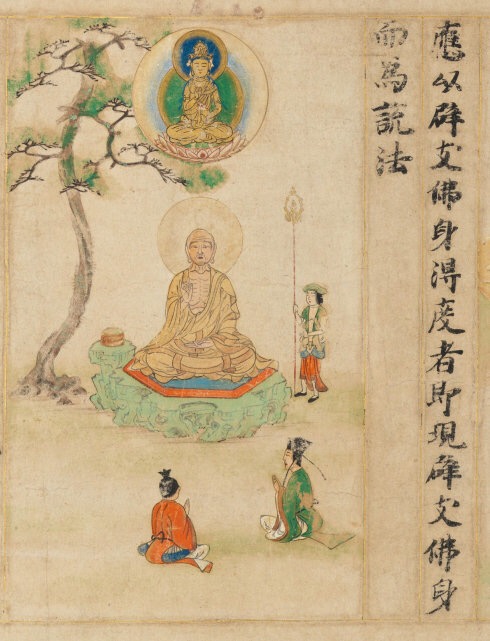 應以辟支佛身得度者即現辟支佛身
而為說法